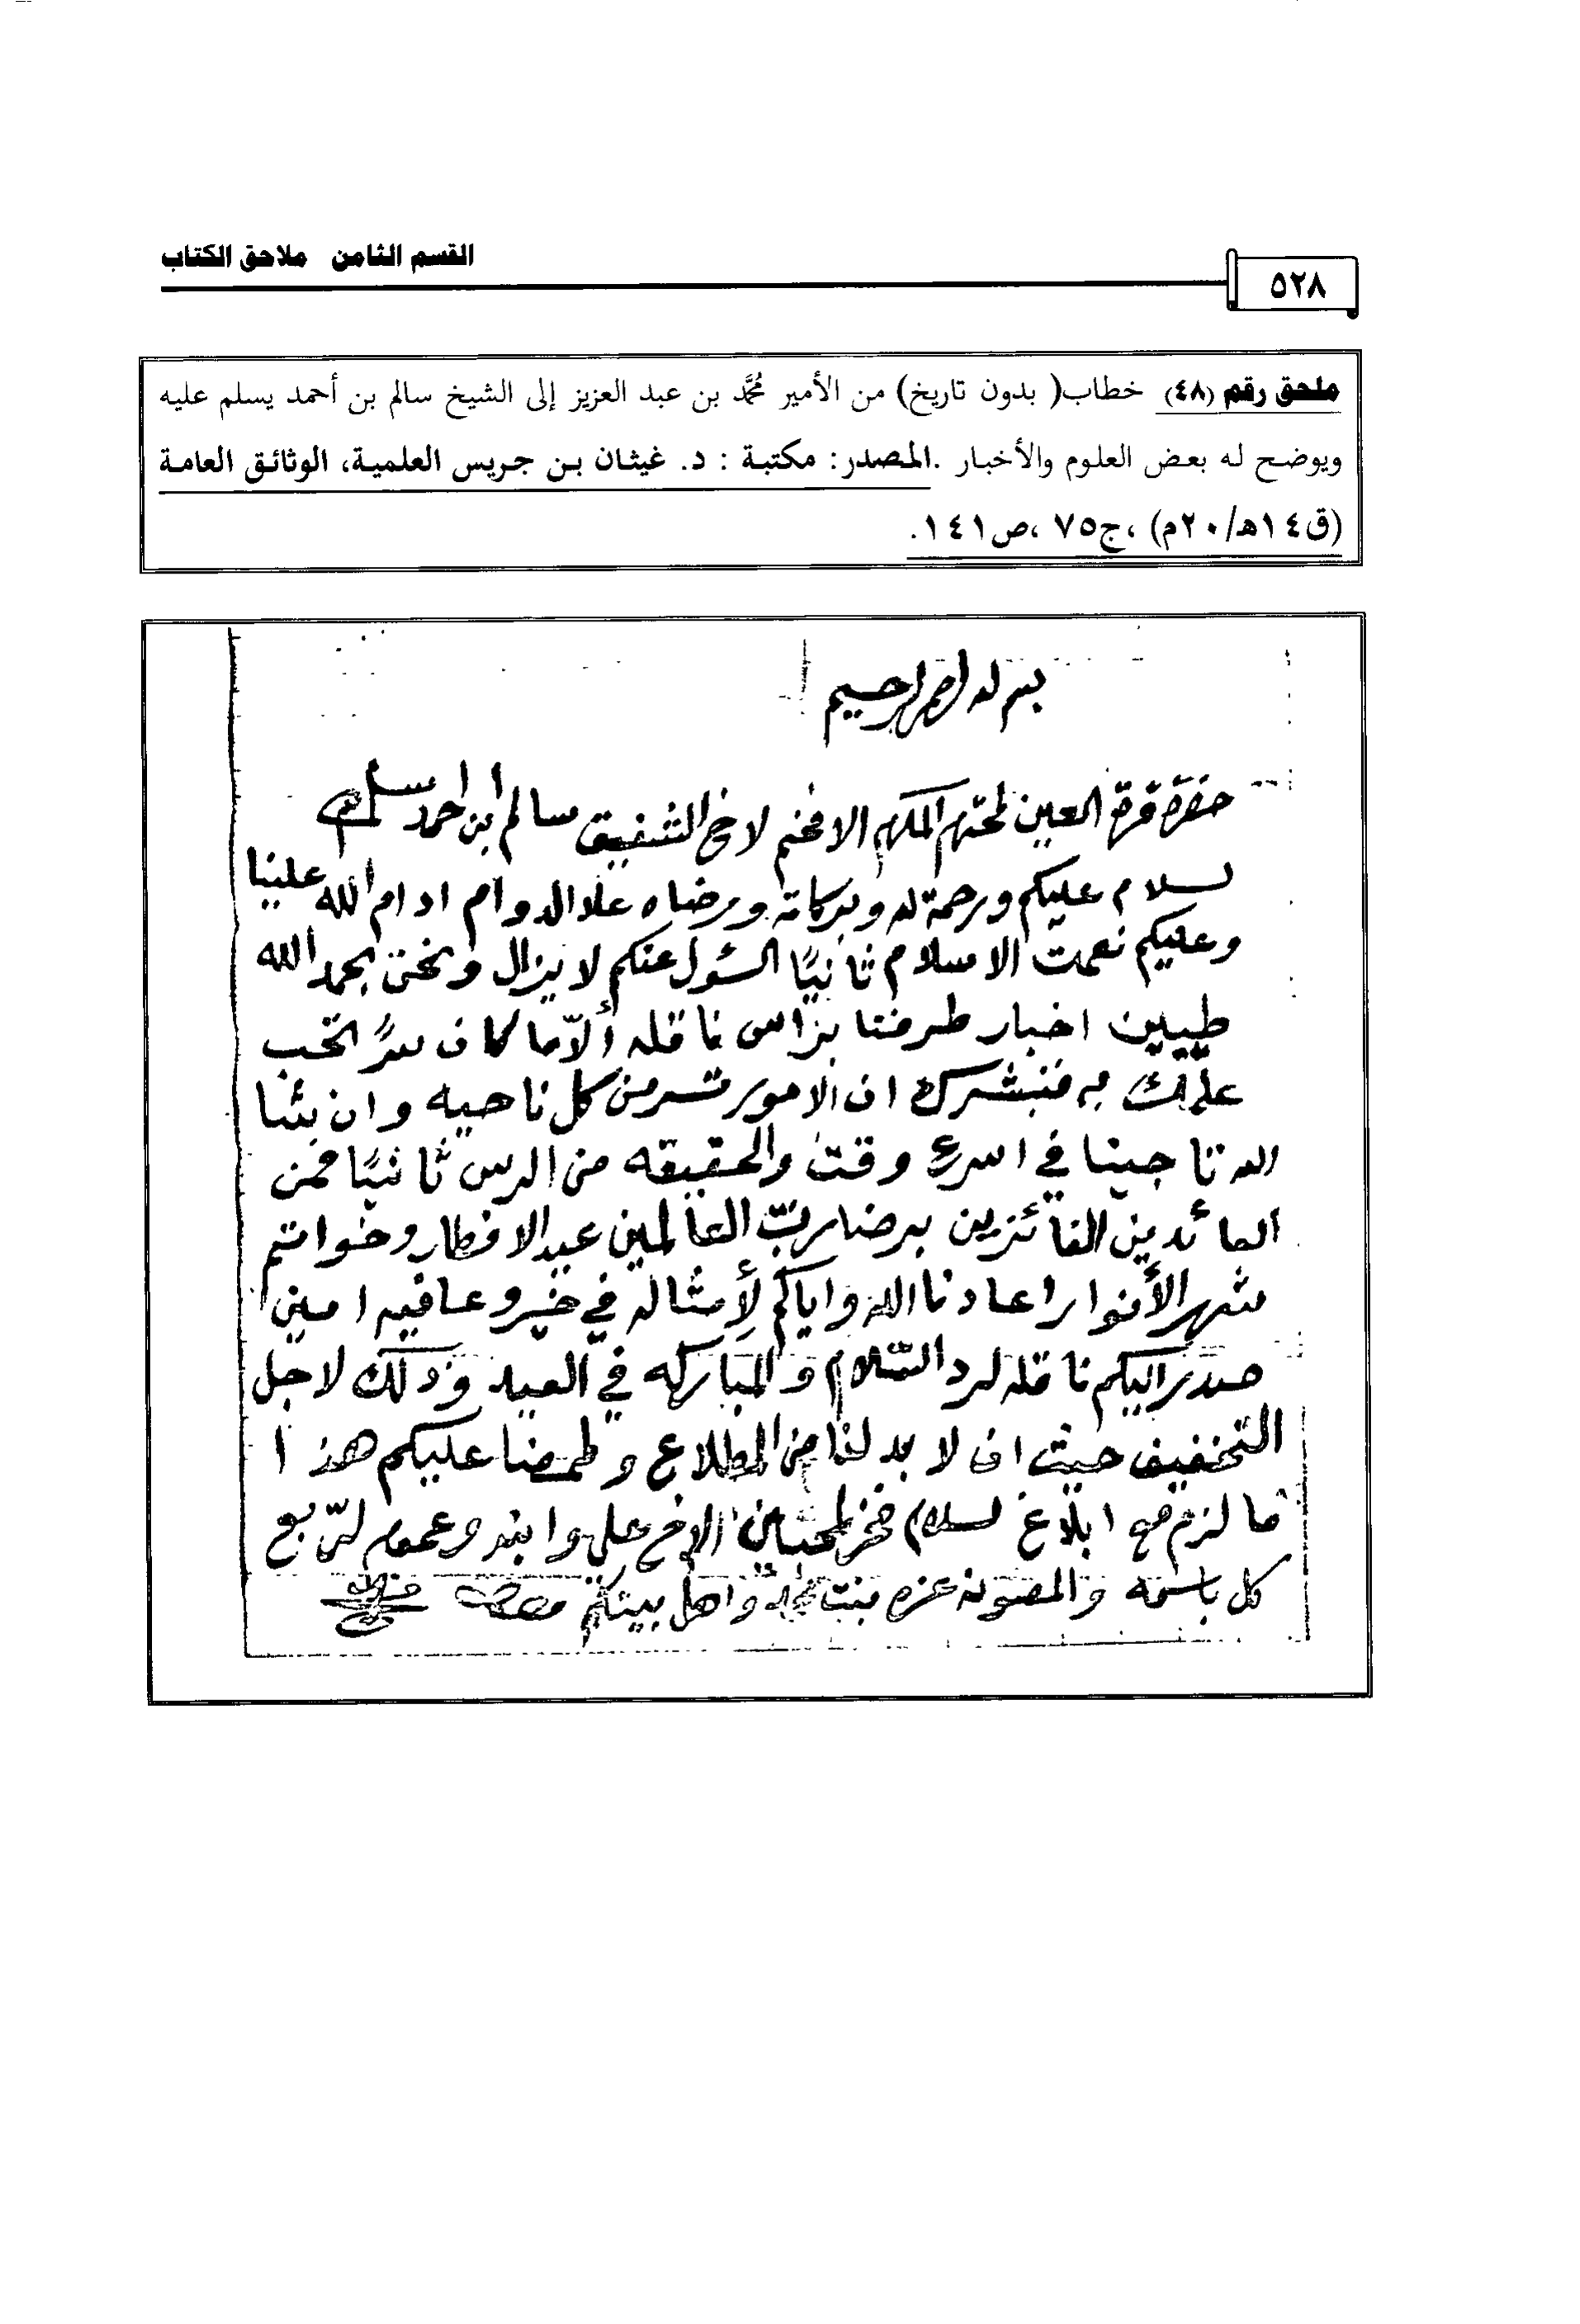 القسم الثامن ملاحق الكتاب
٥٢٨
ملحق رقم (٤٨) خطاب( بدون تاريخ) من الأمير محمَّد بن عبد العزيز إلى الشيخ سالم بن أحمد يسلم عليه
ويوضح له بعض العلوم والأخبار .المصدر: مكتبة : د. غيثان بن جريس العلمية، الوثائق العامة
(ق١٤هـ/٢٠م) ،ج٧٥ ،ص١٤١.
بسم الله الرحمن الرحيم
حضرة قرة العين المحترم المكرم الافخم لاخ الشفيق سالم ابن احمد سلمه الله
لسلام عليكم ورحمة الله وبركاته ومرضاه علا الدوام ادام الله علينا
وعليكم نعمت الاسلام ثانيًا السؤل عنكم لا يزال ونحن بحمد الله
طيبين اخبار طرفنا براس ناقله ألاّ ما كان سرًّ انحب
علمك به فنبشرك ان الامور تسر من كل ناحيه وان يشا
الله تاجينا في اسرع وقت والحقيقه من الرس ثانيًا فمن
العائدين الفائزين برضا ربّ العالمين عيد الافطار وخواتم
شهر الأنوار اعادنا الله واياكم لأمثاله في خير وعافيه امين
صدر اليكم ناقله لرد السّلام والمباركه في العيد وذلك لاجل
التخفيف حيث ان لا بد لنا من المطلاع و عليكم هذا
ما لزم مع ابلاغ لسلام الاخ علي وابنه وعموم
كل باسمه والمصونه عزه بنت محمد واهل بيتكم